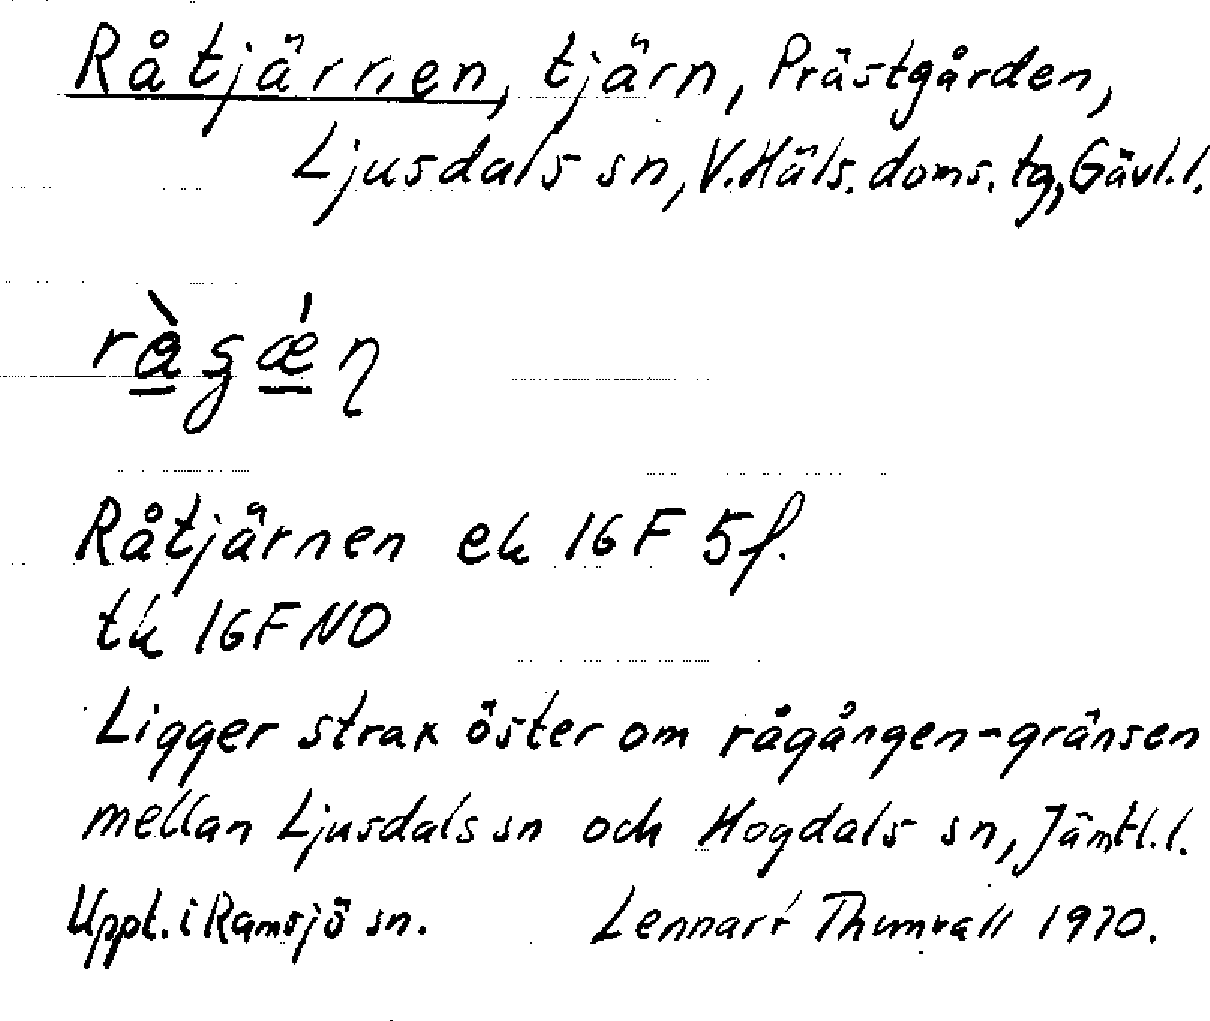 Råtjärnen, tjärn, Prästgården,
Ljusdals sn, V. Häls. doms. tg, Gävl. l.
Råtjärnen ek 16F 5f.
tk 16F NO
Ligger strax öster om rågången-gränsen
mellan Ljusdals sn och Hogdals sn, Jämtl. l.
Uppt. i Ramsjö sn. Lennart Thunvall 1970.